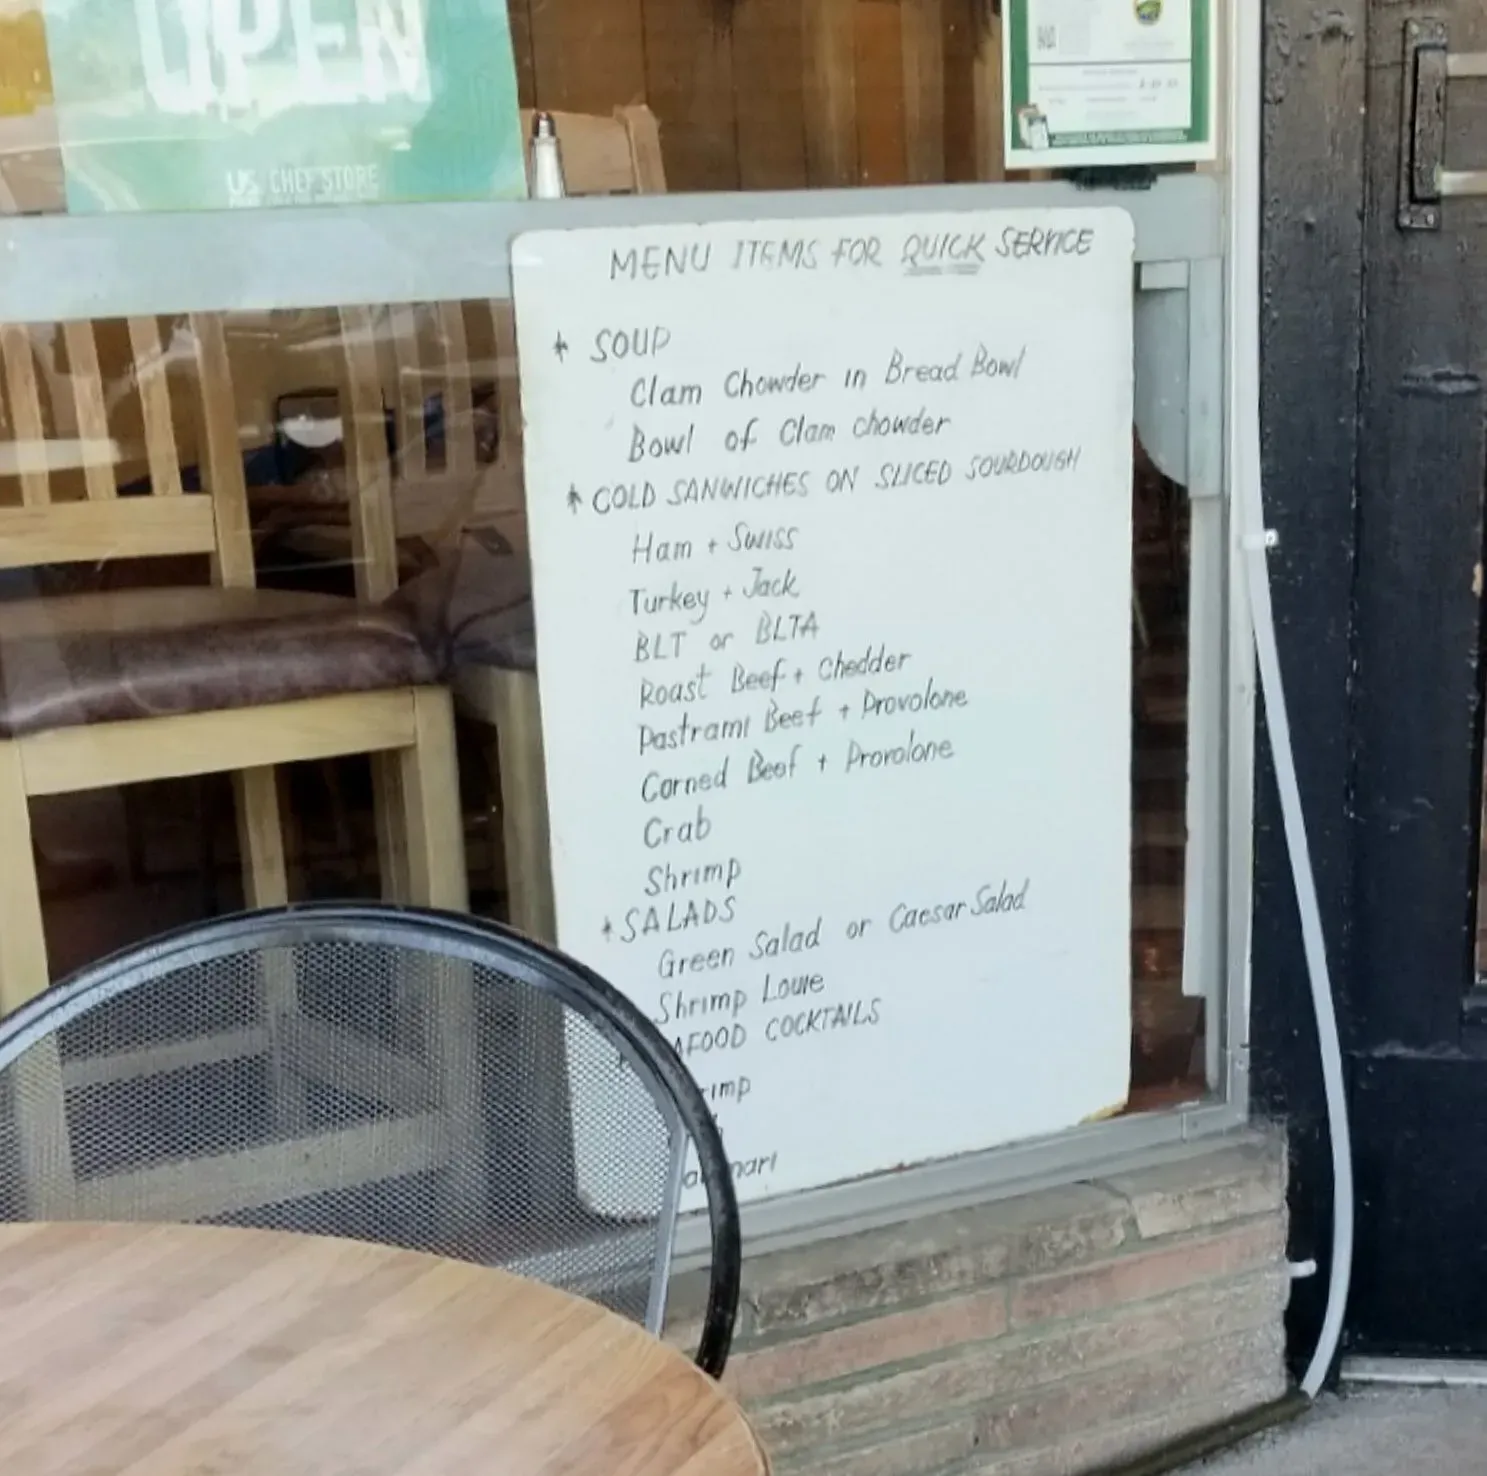 OPEN
US CHEF'STORE
MENU ITEMS FOR QUICK SERVICE
* SOUP
Clam Chowder in Bread Bowl
Bowl of Clam chowder
* COLD SANWICHES ON SLICED SOURDOUGH
Ham + Swiss
Turkey + Jack
BLT or BLTA
Roast Beef + Chedder
Pastrami Beef + Provolone
Corned Beef + Provolone
Crab
Shrimp
* SALADS
Green Salad or Caesar Salad
Shrimp Louie
AFOOD COCKTAILS
rimp